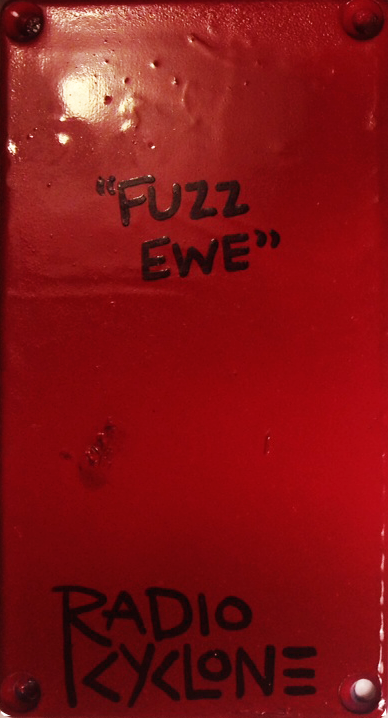 “FUZZ
EWE”
RADIO
CYCLONE